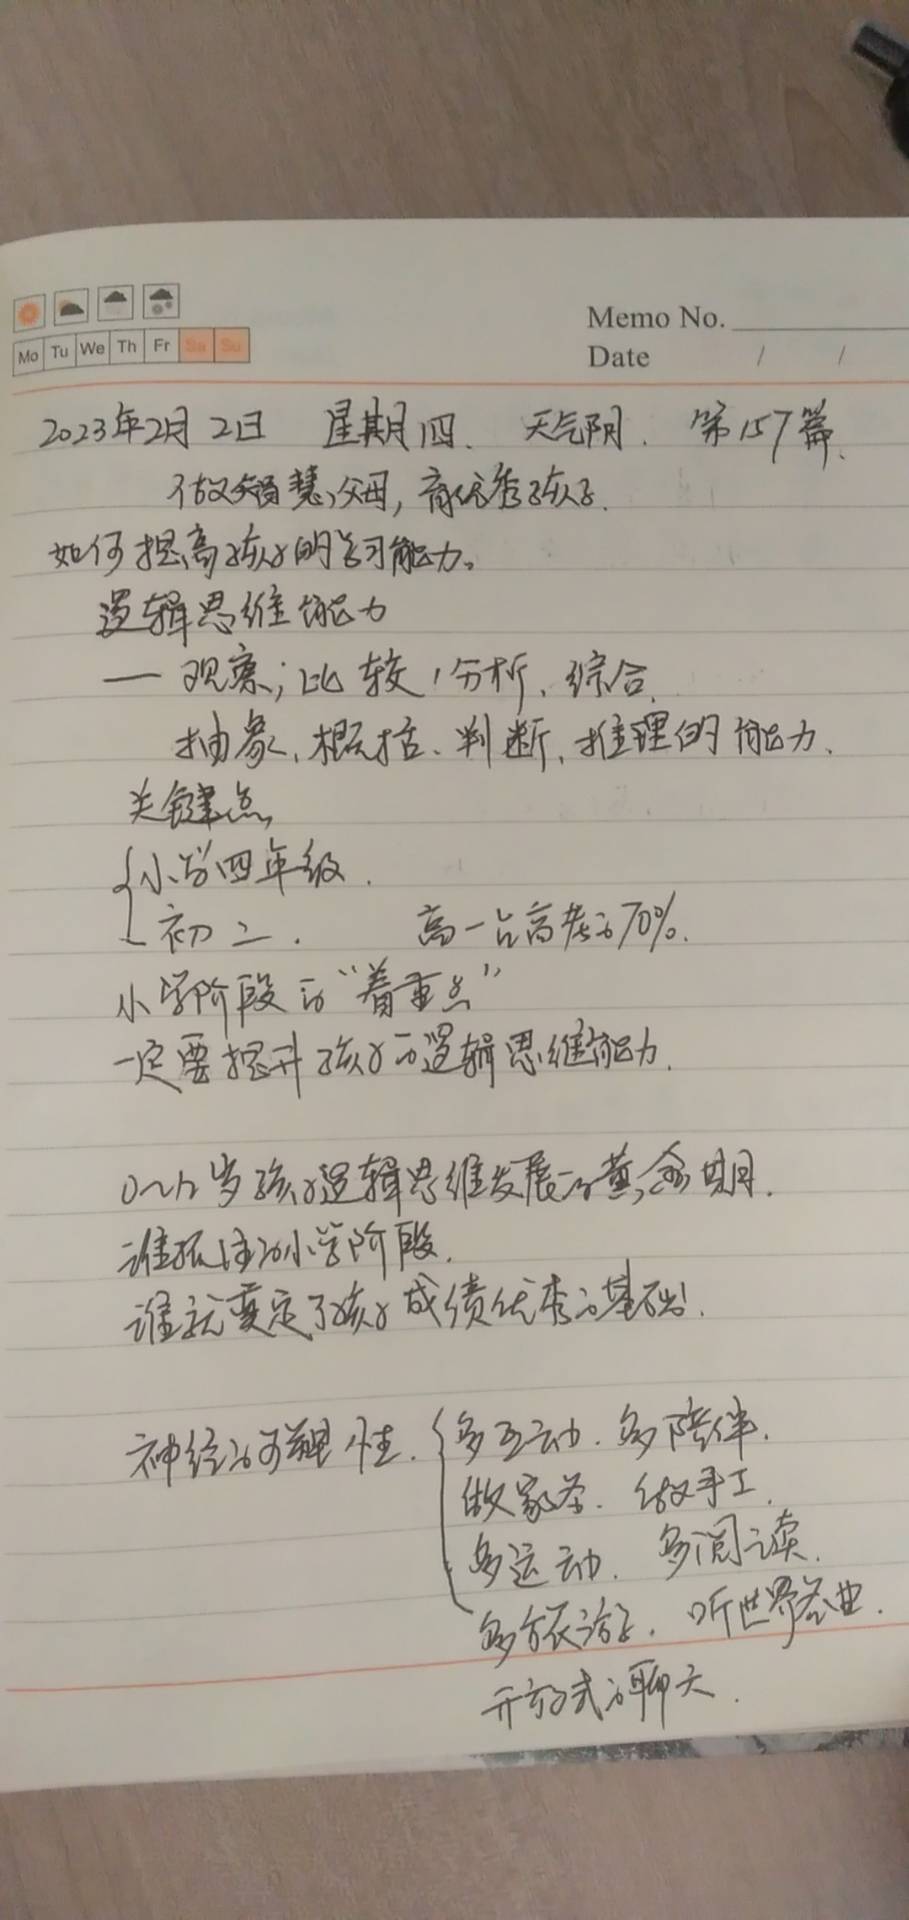 Memo No.
Mo Tu We Th Fr Sa Su
Date / /
2023年2月2日 星期四. 天气阴. 第157篇.
做智慧父母,育优秀孩子.
如何提高孩子的学习能力。
逻辑思维能力
— 观察;比较、分析、综合、
抽象、概括、判断、推理的能力.
关键点
小学四年级.
初二. 高一占高考的70%.
小学阶段的“着重点”
一定要提升孩子的逻辑思维能力.
0~12岁孩子逻辑思维发展的黄金期.
谁抓住的小学阶段.
谁就奠定了孩子成绩优秀的基础!
神经的可塑性. 多互动. 多陪伴.
做家务. 做手工.
多运动. 多阅读.
多旅游. 听世界名曲.
开放式的聊天.